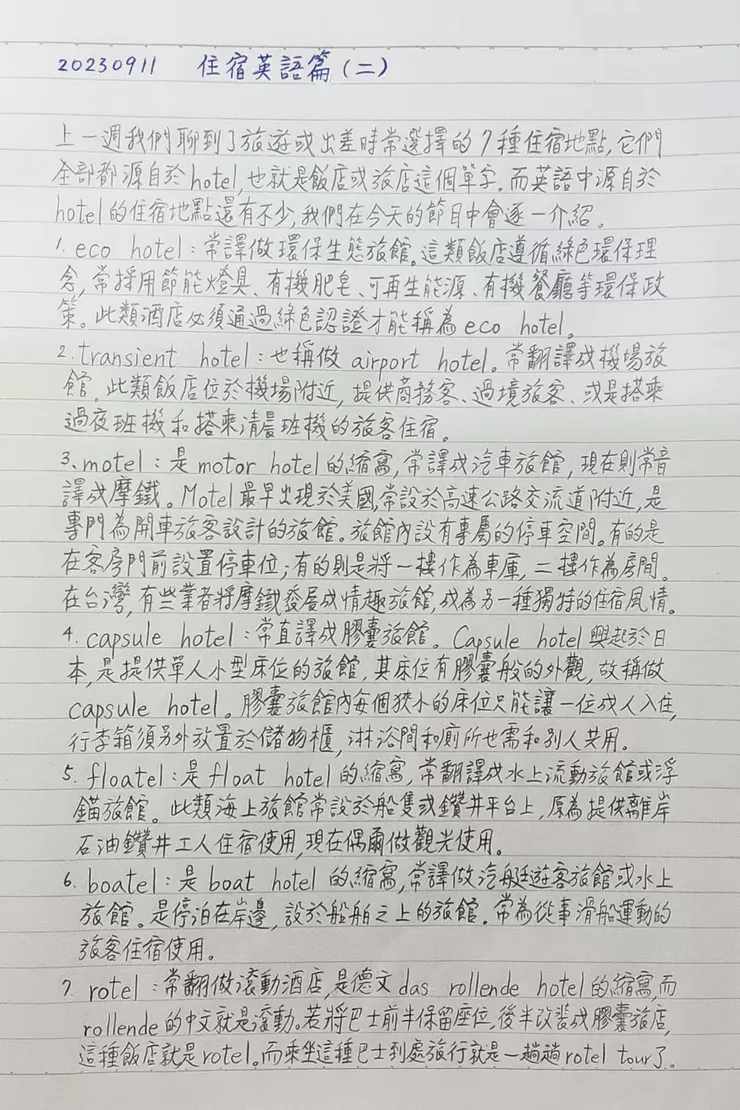 20230911 住宿英語篇(二)
上一週我們聊到了旅遊或出差時常選擇的7種住宿地點,它們
全部都源自於hotel,也就是飯店或旅店這個單字。而英語中源自於
hotel的住宿地點還有不少,我們在今天的節目中會逐一介紹。
1. eco hotel:常譯做環保生態旅館。這類飯店遵循綠色環保理
念,常採用節能燈具、有機肥皂、可再生能源、有機餐廳等環保政
策。此類酒店必須通過綠色認證才能稱為eco hotel。
2. transient hotel:也稱做airport hotel。常翻譯成機場旅
館。此類飯店位於機場附近,提供商務客、過境旅客、或是搭乘
過夜班機和搭乘清晨班機的旅客住宿。
3. motel:是motor hotel的縮寫,常譯成汽車旅館,現在則常音
譯成摩鐵。Motel最早出現於美國,常設於高速公路交流道附近,是
專門為開車旅客設計的旅館。旅館內設有專屬的停車空間。有的是
在客房門前設置停車位;有的則是將一樓作為車庫,二樓作為房間。
在台灣,有些業者將摩鐵發展成情趣旅館,成為另一種獨特的住宿風情。
4. capsule hotel:常直譯成膠囊旅館。Capsule hotel興起於日
本,是提供單人小型床位的旅館,其床位有膠囊般的外觀,故稱做
capsule hotel。膠囊旅館內每個狹小的床位只能讓一位成人入住,
行李箱須另外放置於儲物櫃,淋浴間和廁所也需和別人共用。
5. floatel:是float hotel的縮寫,常翻譯成水上流動旅館或浮
錨旅館。此類海上旅館常設於船隻或鑽井平台上,原為提供離岸
石油鑽井工人住宿使用,現在偶爾做觀光使用。
6. boatel:是boat hotel的縮寫,常譯做汽艇遊客旅館或水上
旅館。是停泊在岸邊,設於船舶之上的旅館。常為從事滑船運動的
旅客住宿使用。
7. rotel:常翻做滾動酒店,是德文das rollende hotel的縮寫,而
rollende的中文就是滾動。若將巴士前半保留座位,後半改裝成膠囊旅店,
這種飯店就是rotel。而乘坐這種巴士到處旅行就是一趟趟rotel tour了。